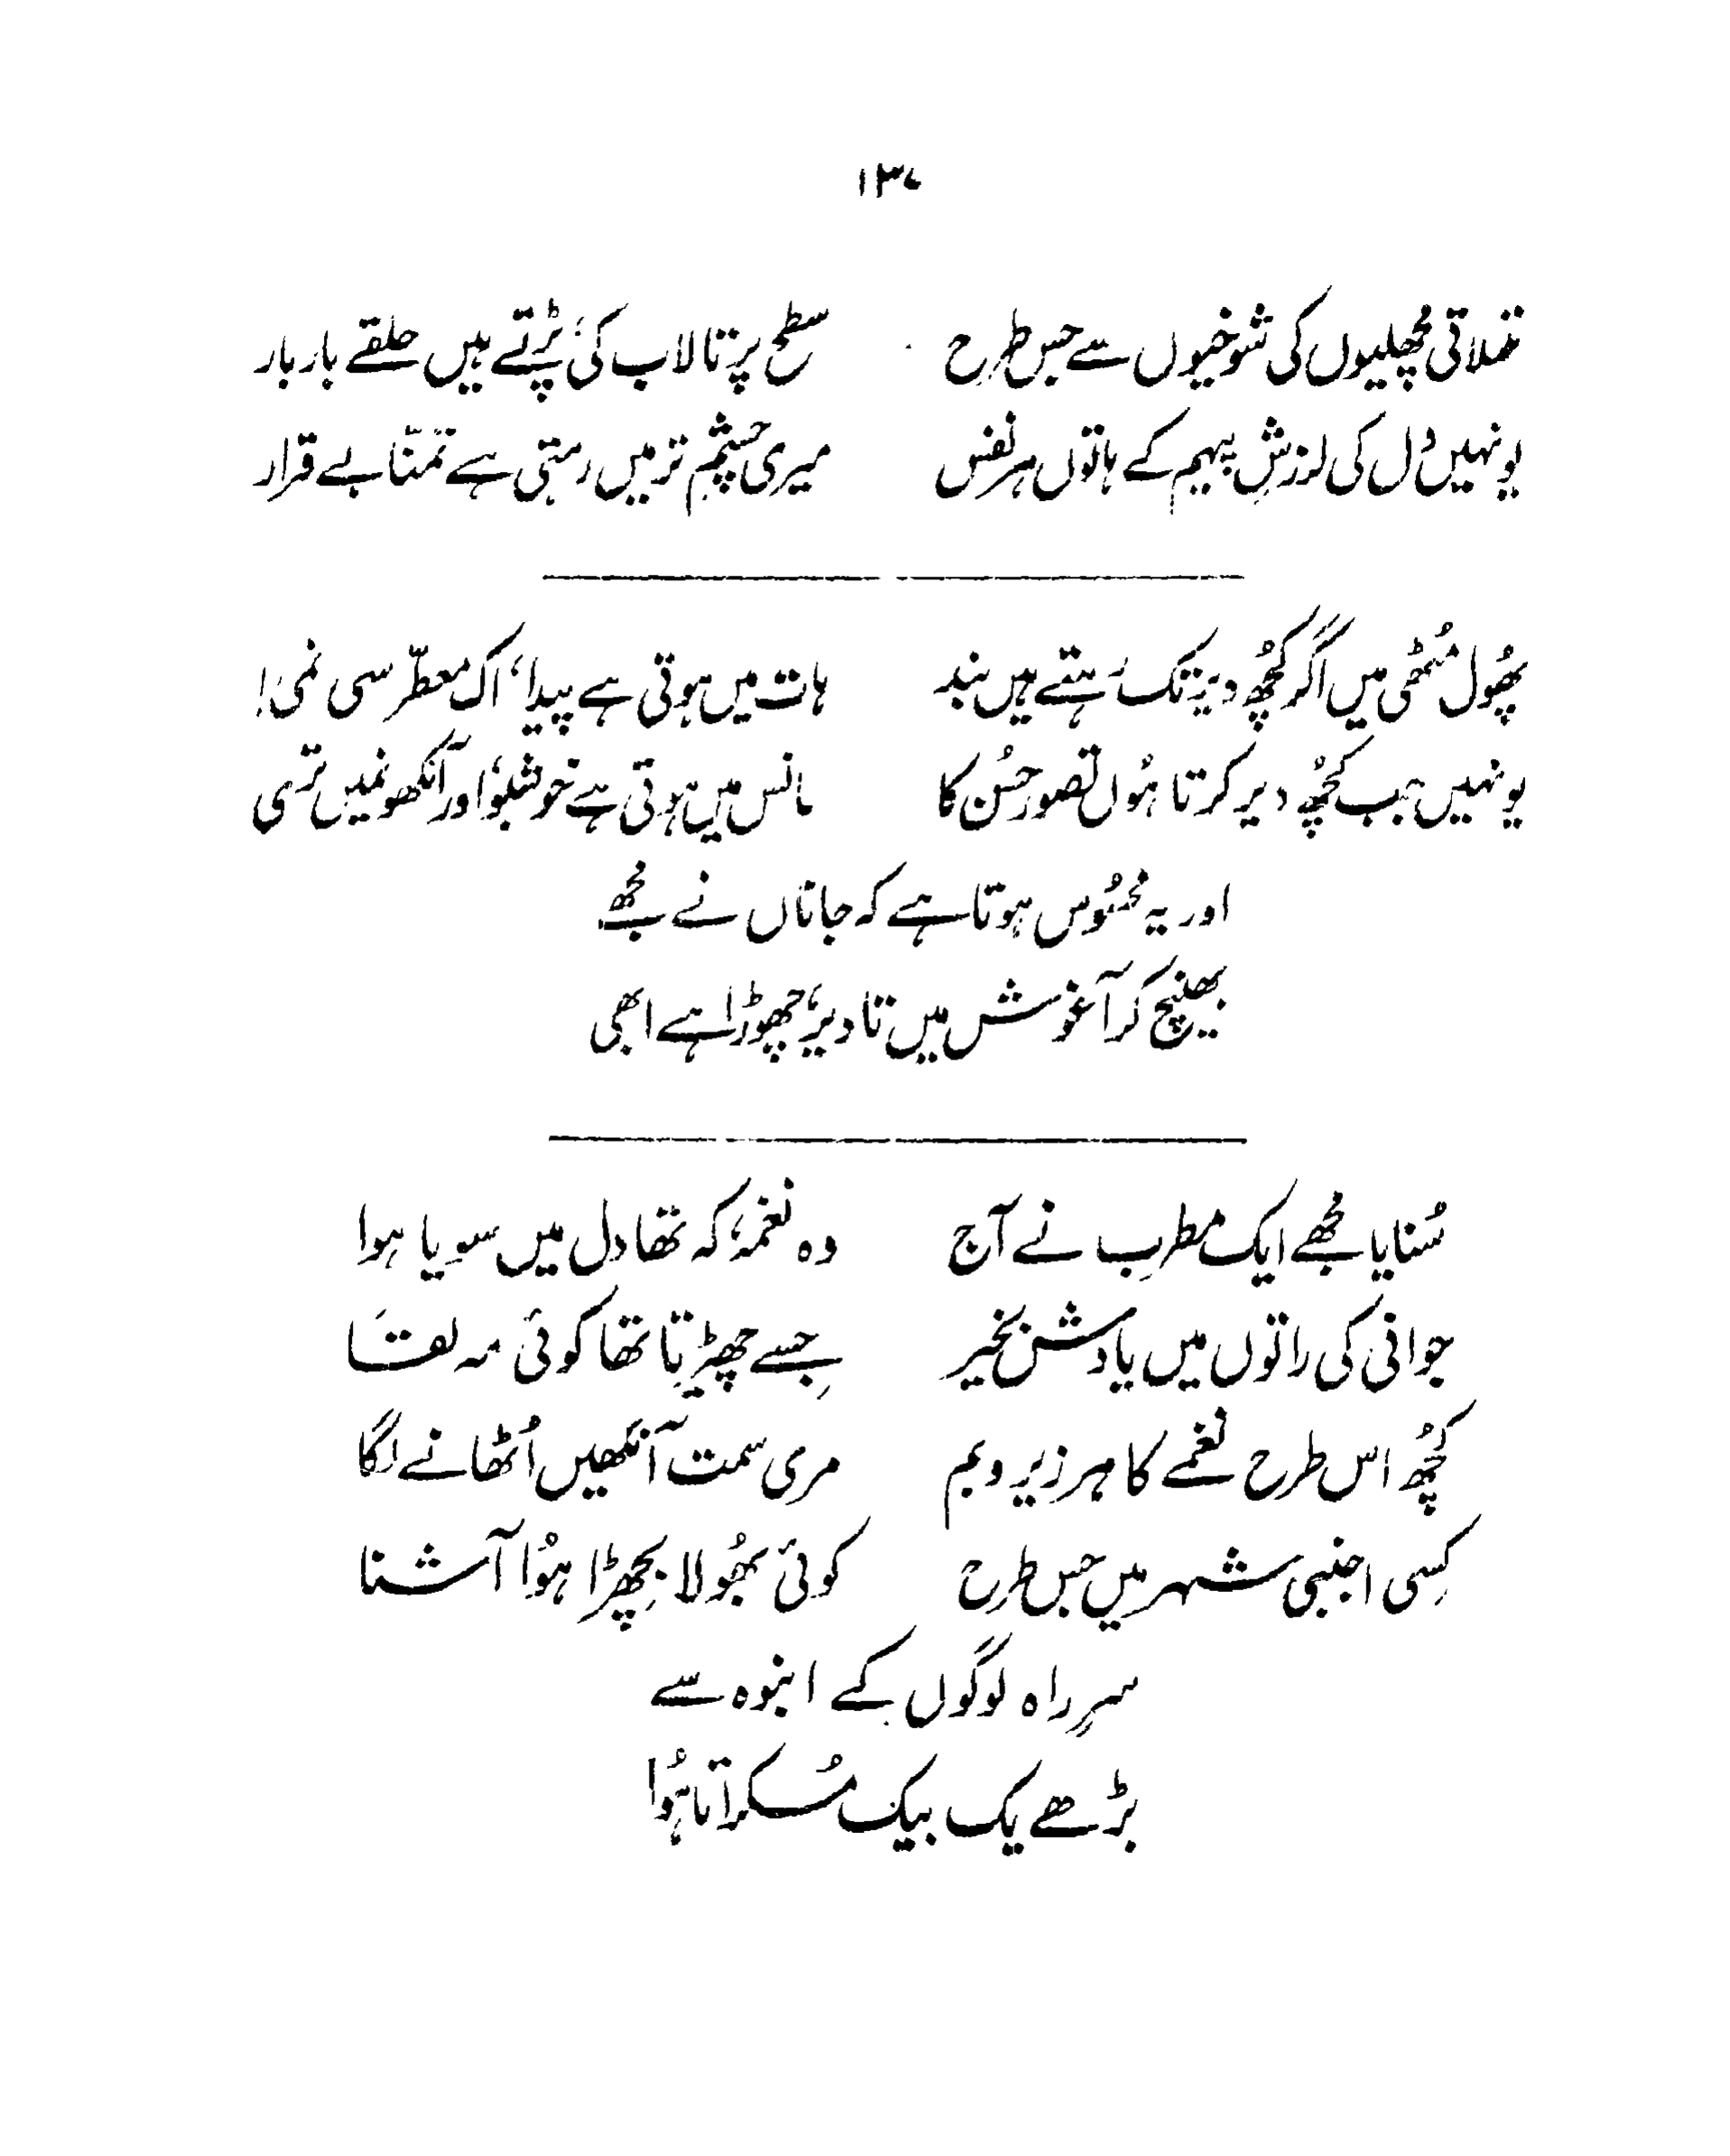 ۱۳۷
تملاتی مچھلیوں کی شوخیوں سے جس طرح سطح پر تالاب کی، پڑتے ہیں حلقے بار بار
یونہیں دل کی لرزشِ پیہم کے ہاتوں ہر نفس میری چشمِ تر میں رہتی ہے تمنّا بے قرار
پھُول مٹُھی میں اگر کچُھ دیر تک رہتے ہیں بند ہات میں ہوتی ہے پیدا، اک معطّر سی نمی!
یونہیں جب کچُھ دیر کرتا ہُوں تصور حسُن کا سانس میں ہوتی ہے خوشبو، اور آنکھونمیں تری
اور یہ محسُوس ہوتا ہے کہ جاناں نے مجُھے
بھینچ کر آغوش میں تا دیر، چھوڑا ہے ابھی
سُنایا مجُھے ایک مطرِب نے آج وہ نغمہ، کہ تھا دل میں سویا ہوا
جوانی کی راتوں میں یادش بخیر جِسے چھیڑتا تھا کوئی مہ لقا
کچُھ اس طرح نغمے کا ہر زیر و بم مری سمت آنکھیں اُٹھانے لگا
کِسی اجنبی شہر میں جس طرح کوئی بھُولا بِچھڑا ہُوا آشنا
سرِ راہ لوگوں کے انبوہ سے
بڑھے یک بیک مُسکراتا ہُوا